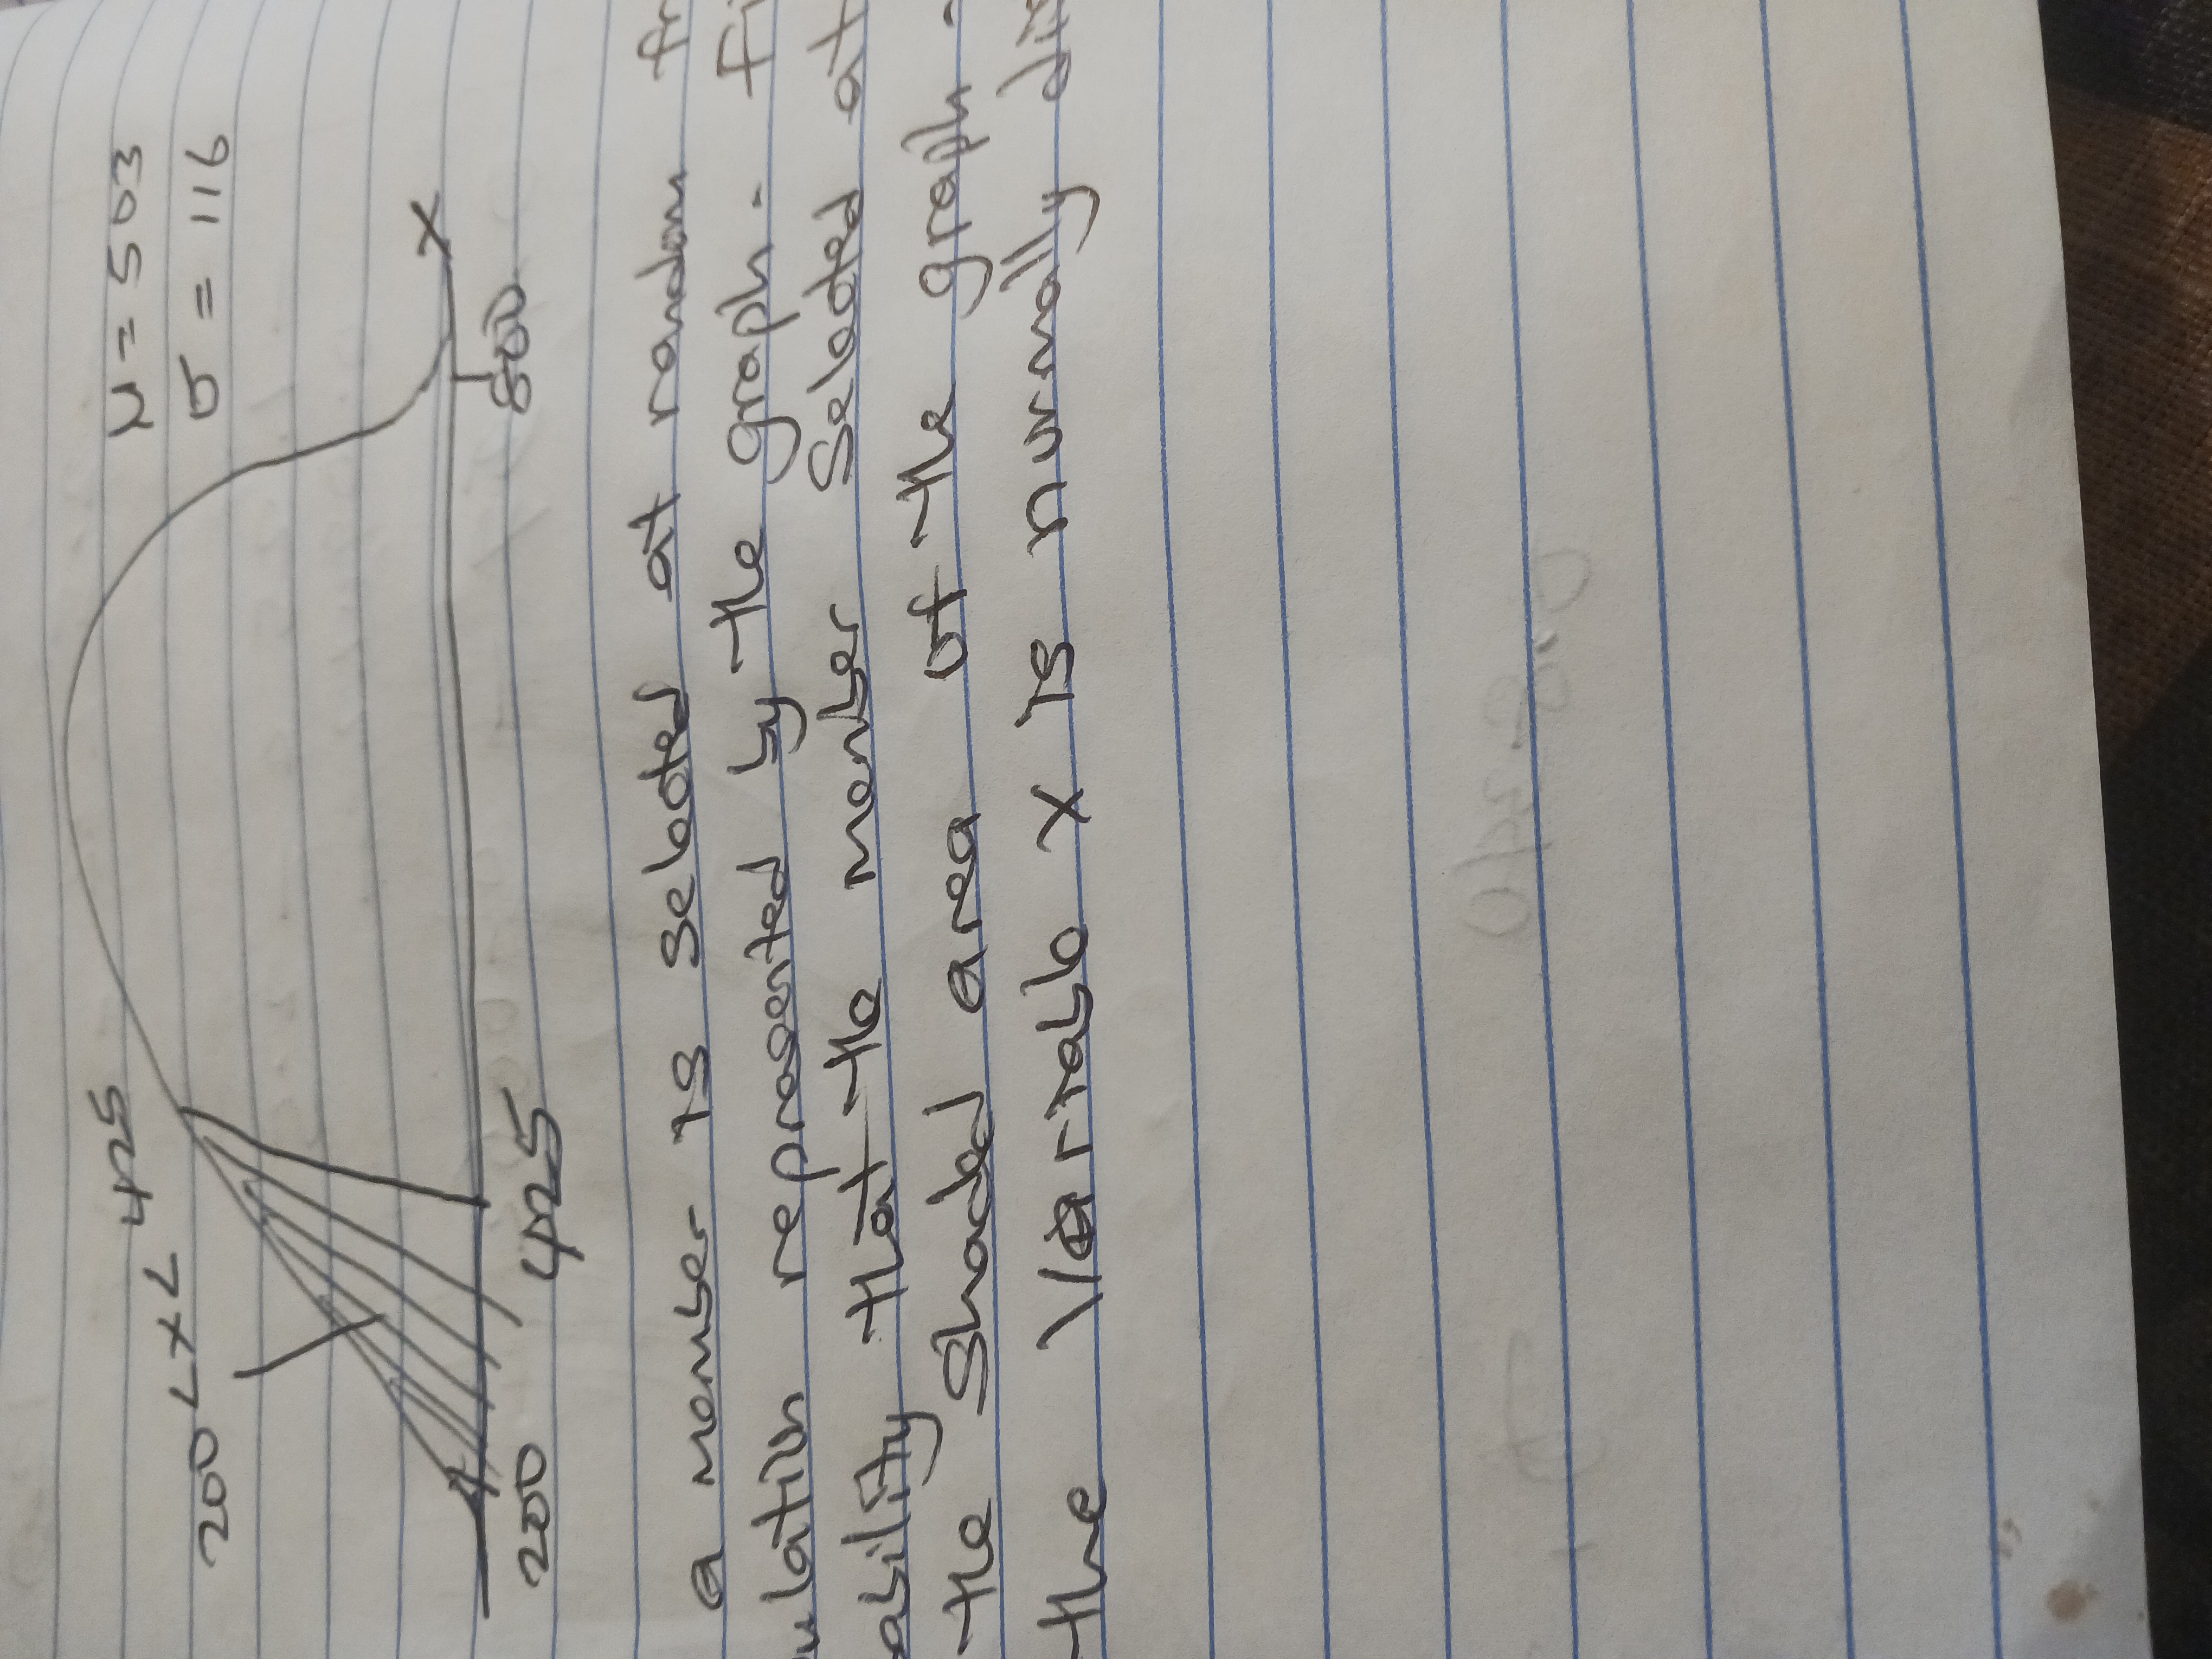 μ = 503
σ = 116
200 < x < 425
x
200 425 800
a member is selected at random
represented by the graph.
that the member selected at
the shaded area of the graph.
the variable x is normally